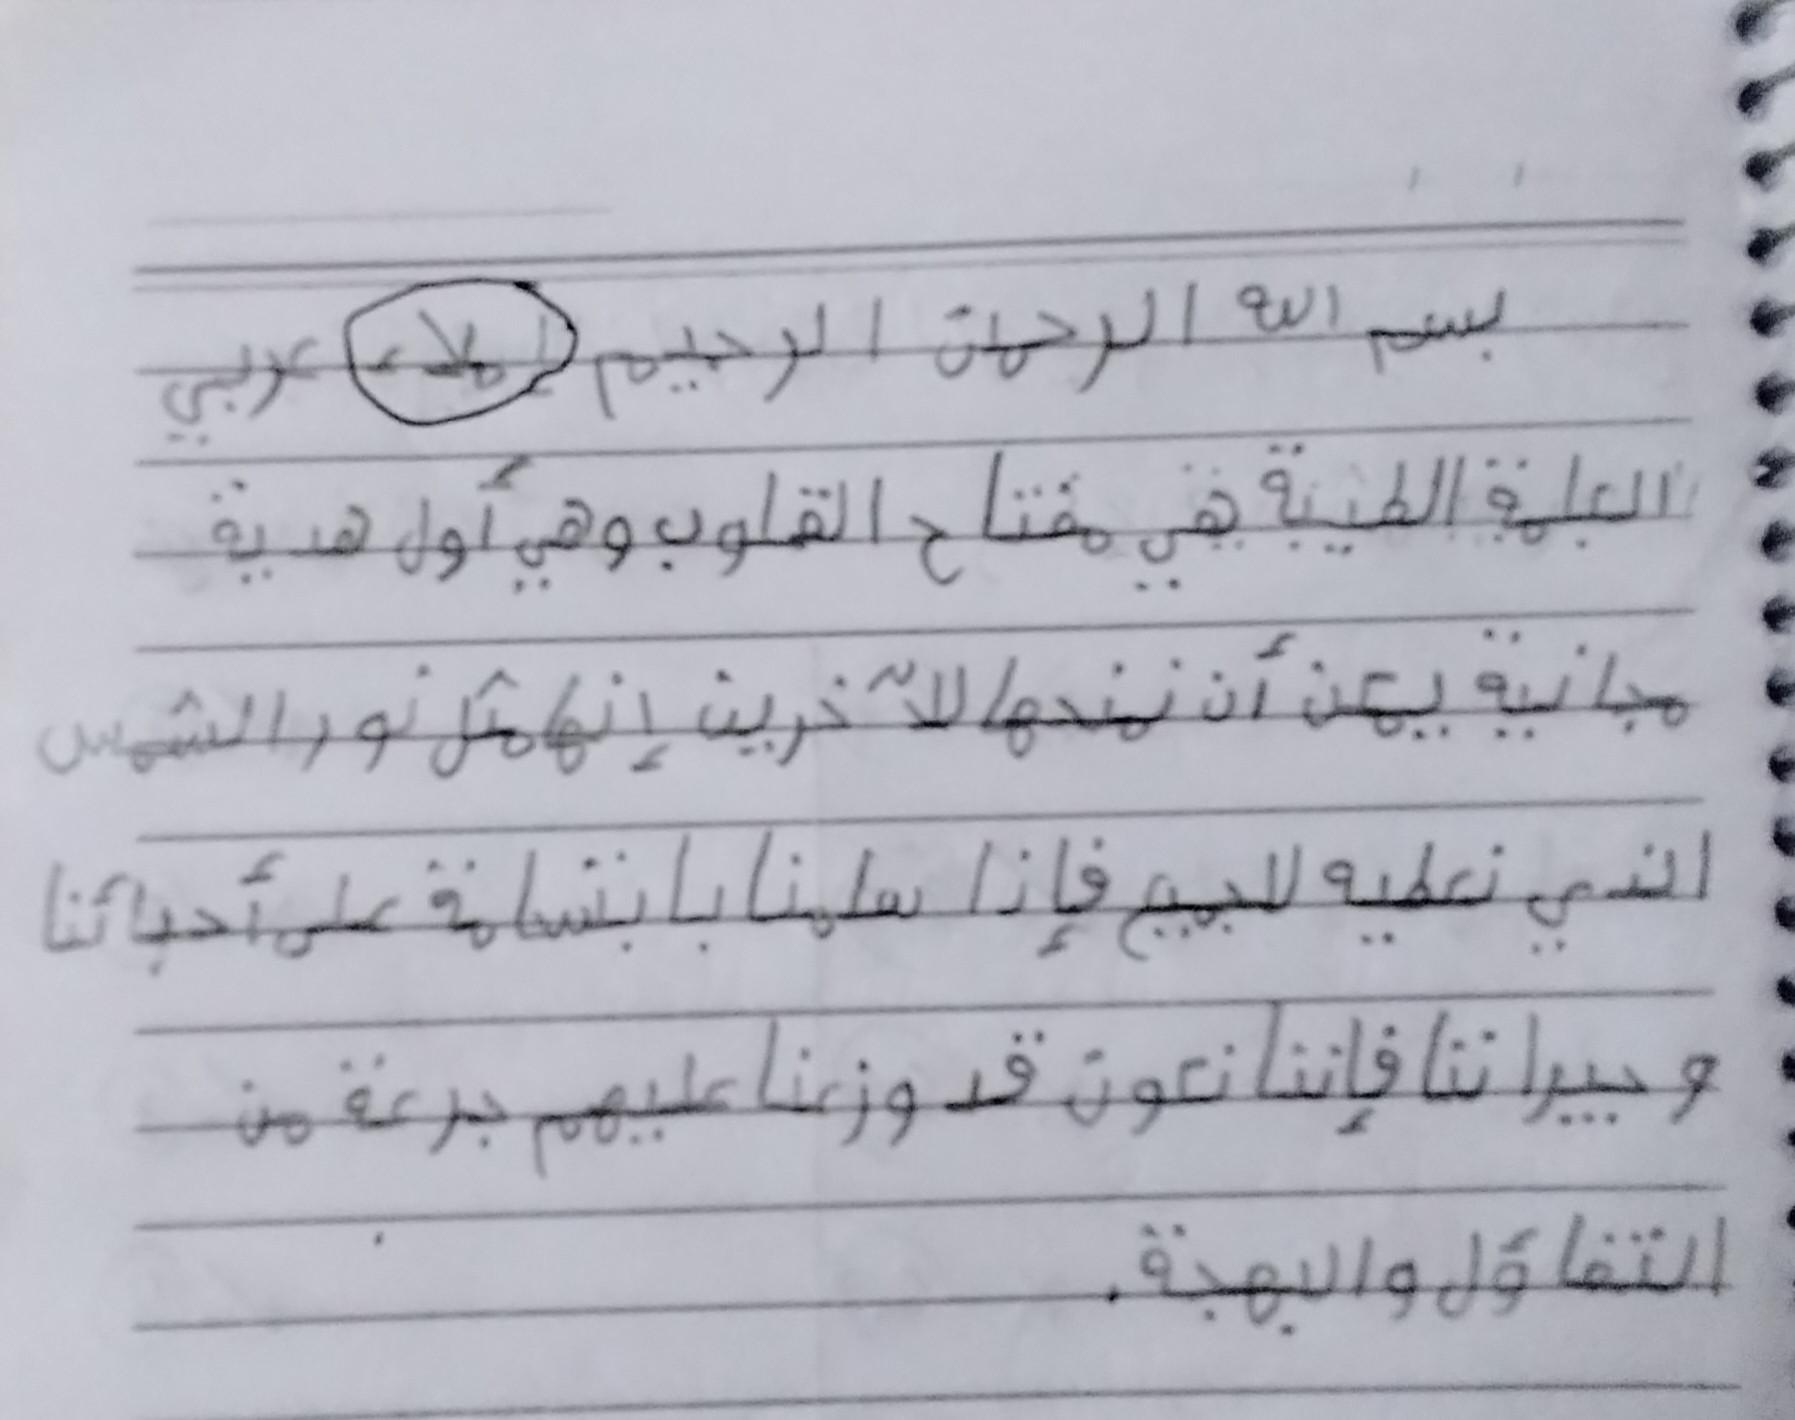 بسم الله الرحمن الرحيم إملاء عربي
الكلمة الطيبة هي مفتاح القلوب وهي أول هدية
مجانية يمكن أن نمنحها للآخرين إنها مثل نور الشمس
الذي نعطيه للجميع فإذا سلمنا بابتسامة على أحبائنا
و جيراننا فإننا نكون قد وزعنا عليهم جرعة من
التفاؤل والبهجة.